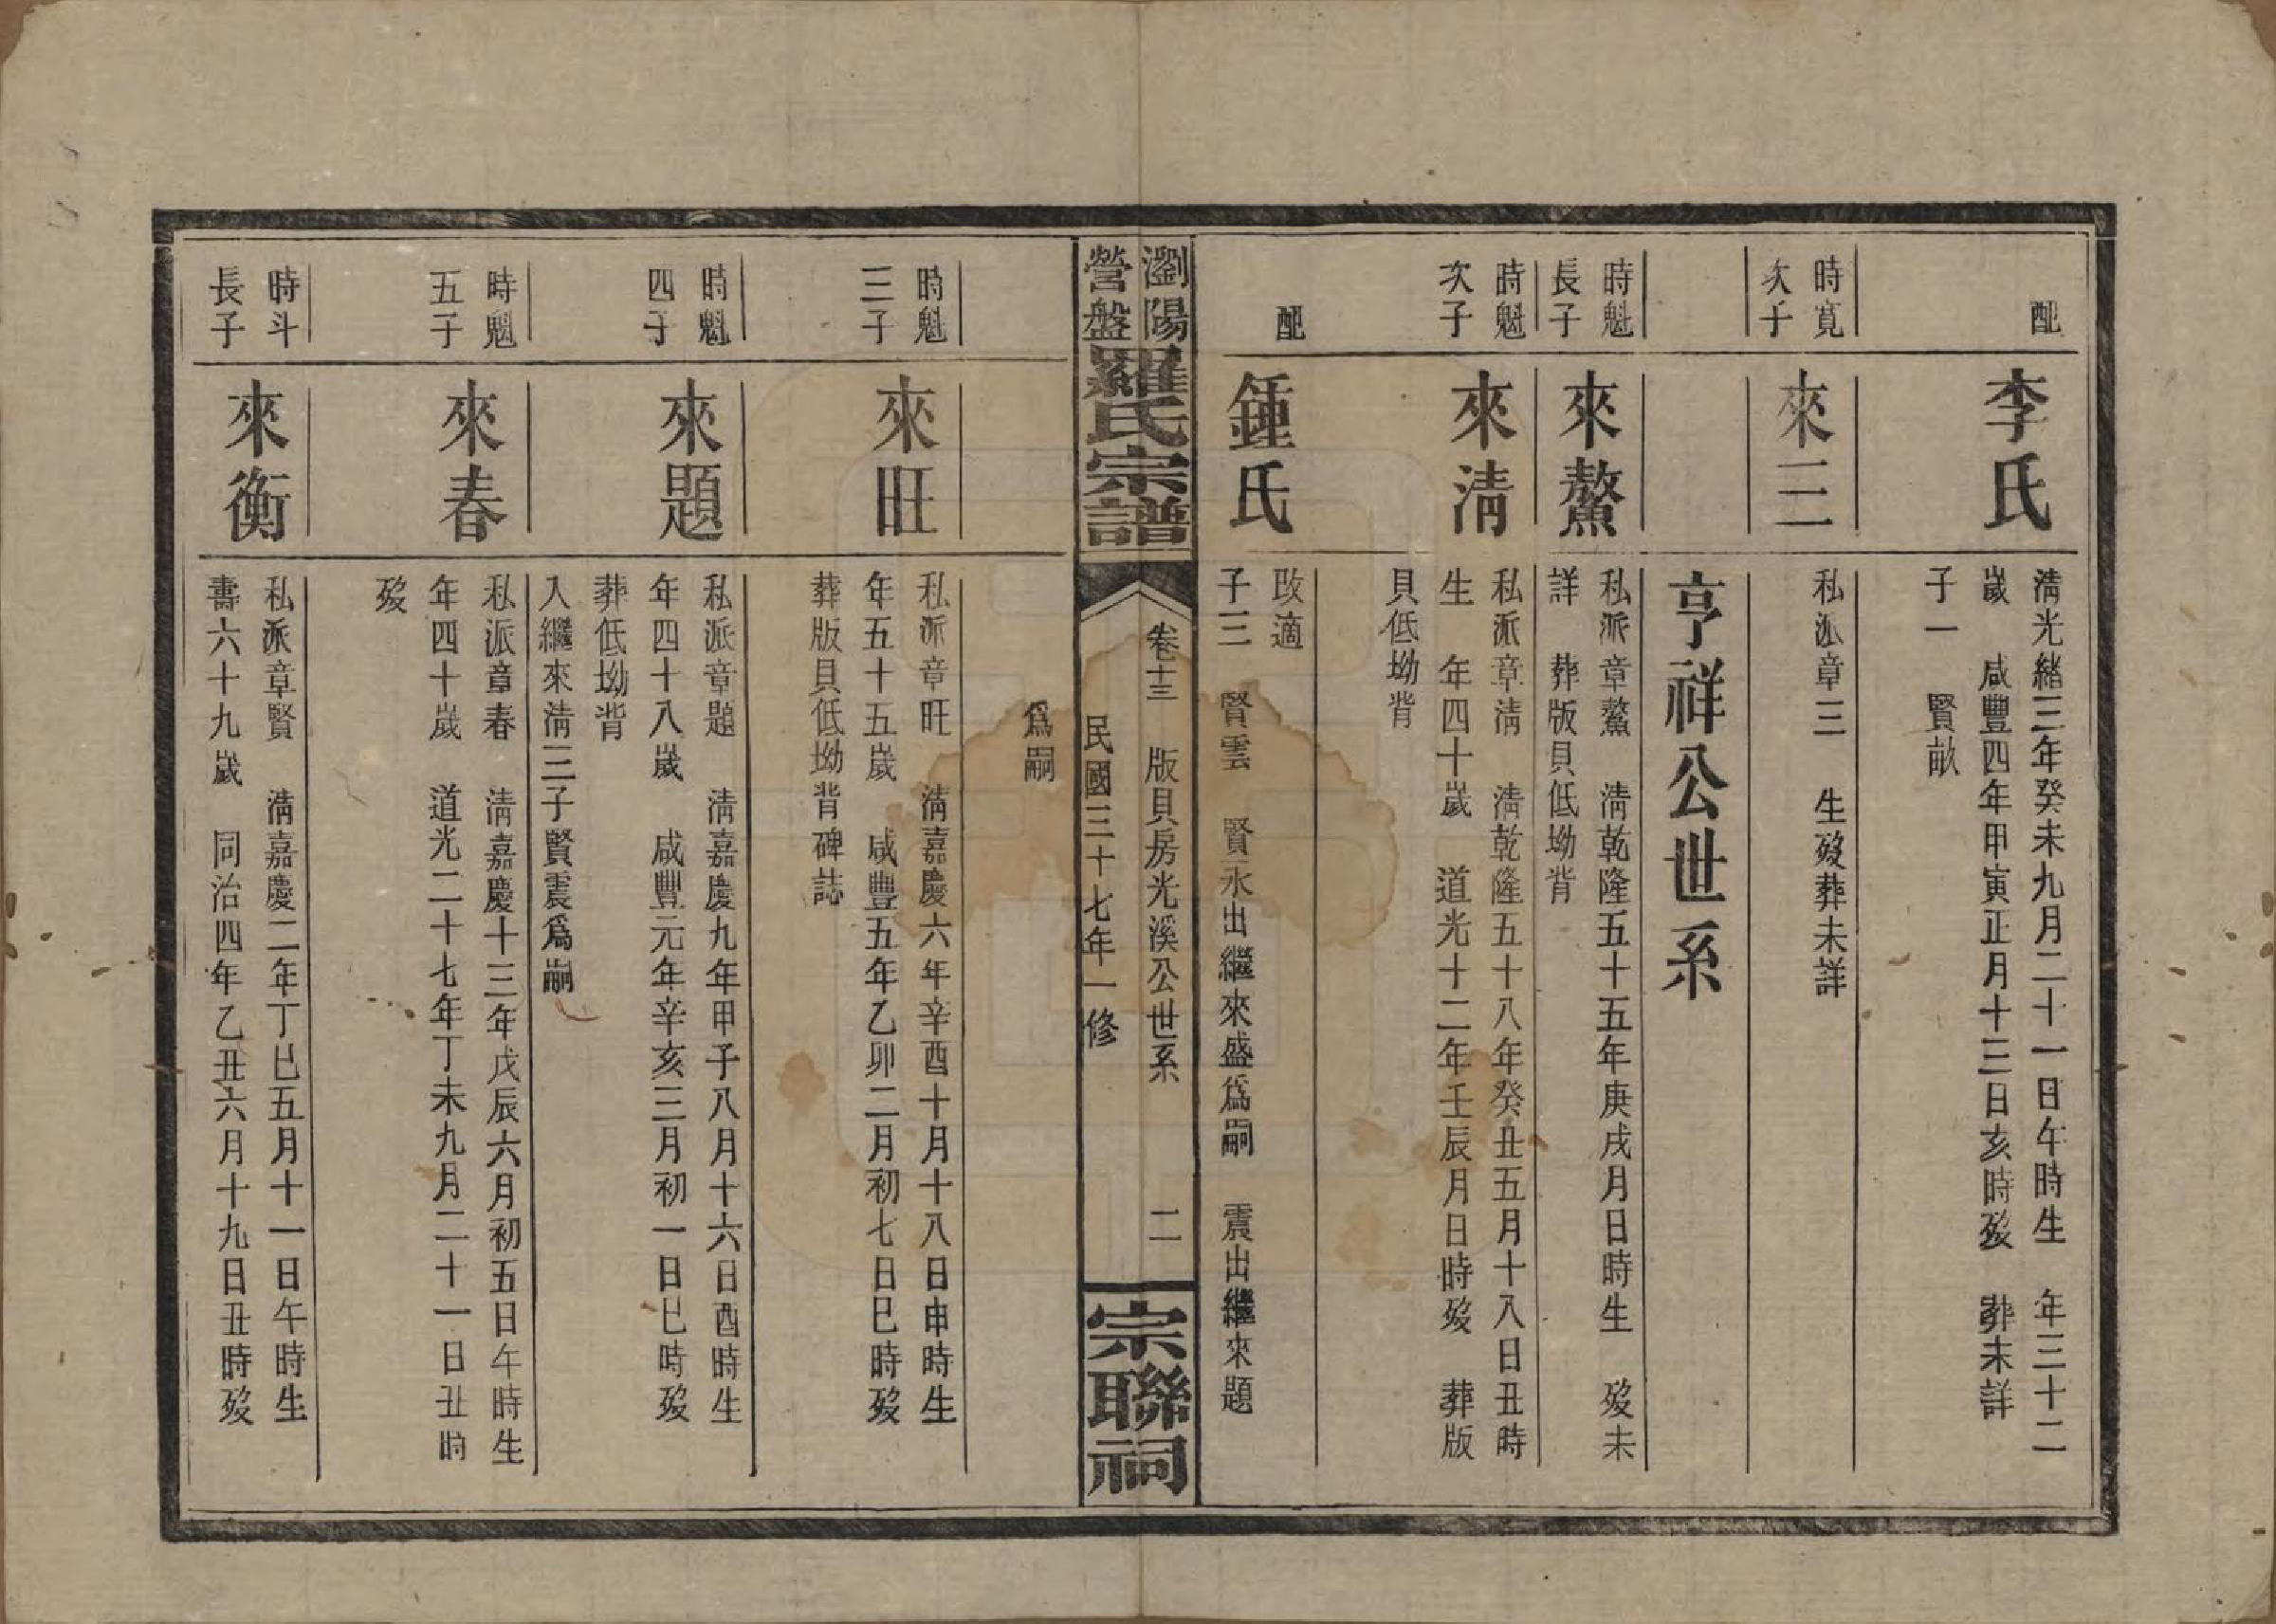 配
李氏
清光緒三年癸未九月二十一日午時生　年三十二
歲　咸豐四年甲寅正月十三日亥時歿　葬未詳
子一　賢畝
時寬
次子
來三
私派章三　生歿葬未詳
亨祥公世系
時魁
長子
來鰲
私派章鰲　清乾隆五十五年庚戌月日時生　歿未
詳　葬版貝低坳背
時魁
次子
來清
私派章清　清乾隆五十八年癸丑五月十八日丑時
生　年四十歲　道光十二年壬辰月日時歿　葬版
貝低坳背
配
鍾氏
改適
子三　賢雲　賢永出繼來盛爲嗣　震出繼來題
瀏陽
營盤
羅氏宗譜
卷十三　版貝房光溪公世系　二
民國三十七年一修
宗聯祠
爲嗣
時魁
三子
來旺
私派章旺　清嘉慶六年辛酉十月十八日申時生
年五十五歲　咸豐五年乙卯二月初七日巳時歿
葬版貝低坳背碑誌
時魁
四子
來題
私派章題　清嘉慶九年甲子八月十六日酉時生
年四十八歲　咸豐元年辛亥三月初一日巳時歿
葬低坳背
入繼來清三子賢震爲嗣
時魁
五子
來春
私派章春　清嘉慶十三年戊辰六月初五日午時生
年四十歲　道光二十七年丁未九月二十一日丑時
歿
時斗
長子
來衡
私派章賢　清嘉慶二年丁巳五月十一日午時生
壽六十九歲　同治四年乙丑六月十九日丑時歿